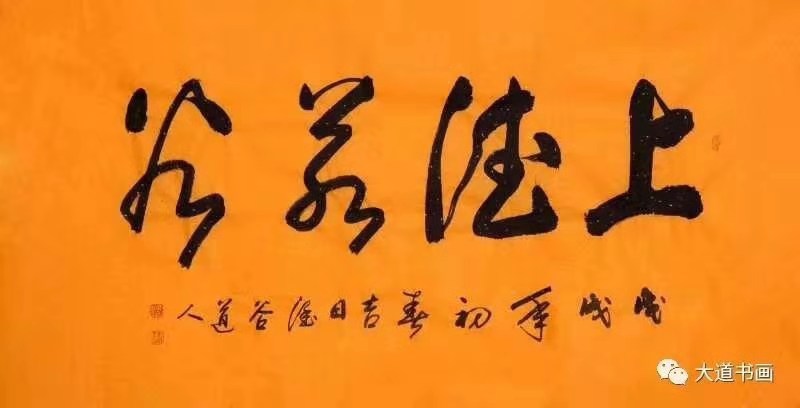 上德若谷
戊戌年初春吉日德谷道人
大道书画